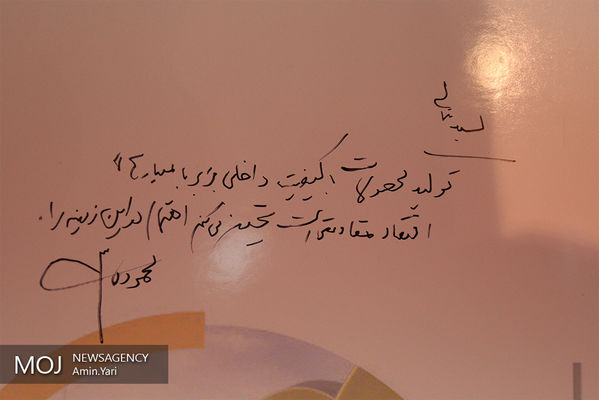 بسمه تعالی
تولید محصولات باکیفیت داخلی برابر با معیارهای
اقتصاد مقاومتی است تحسین می‌کنم اهتمام در این زمینه را.
MOJ NEWSAGENCY
Amin.Yari